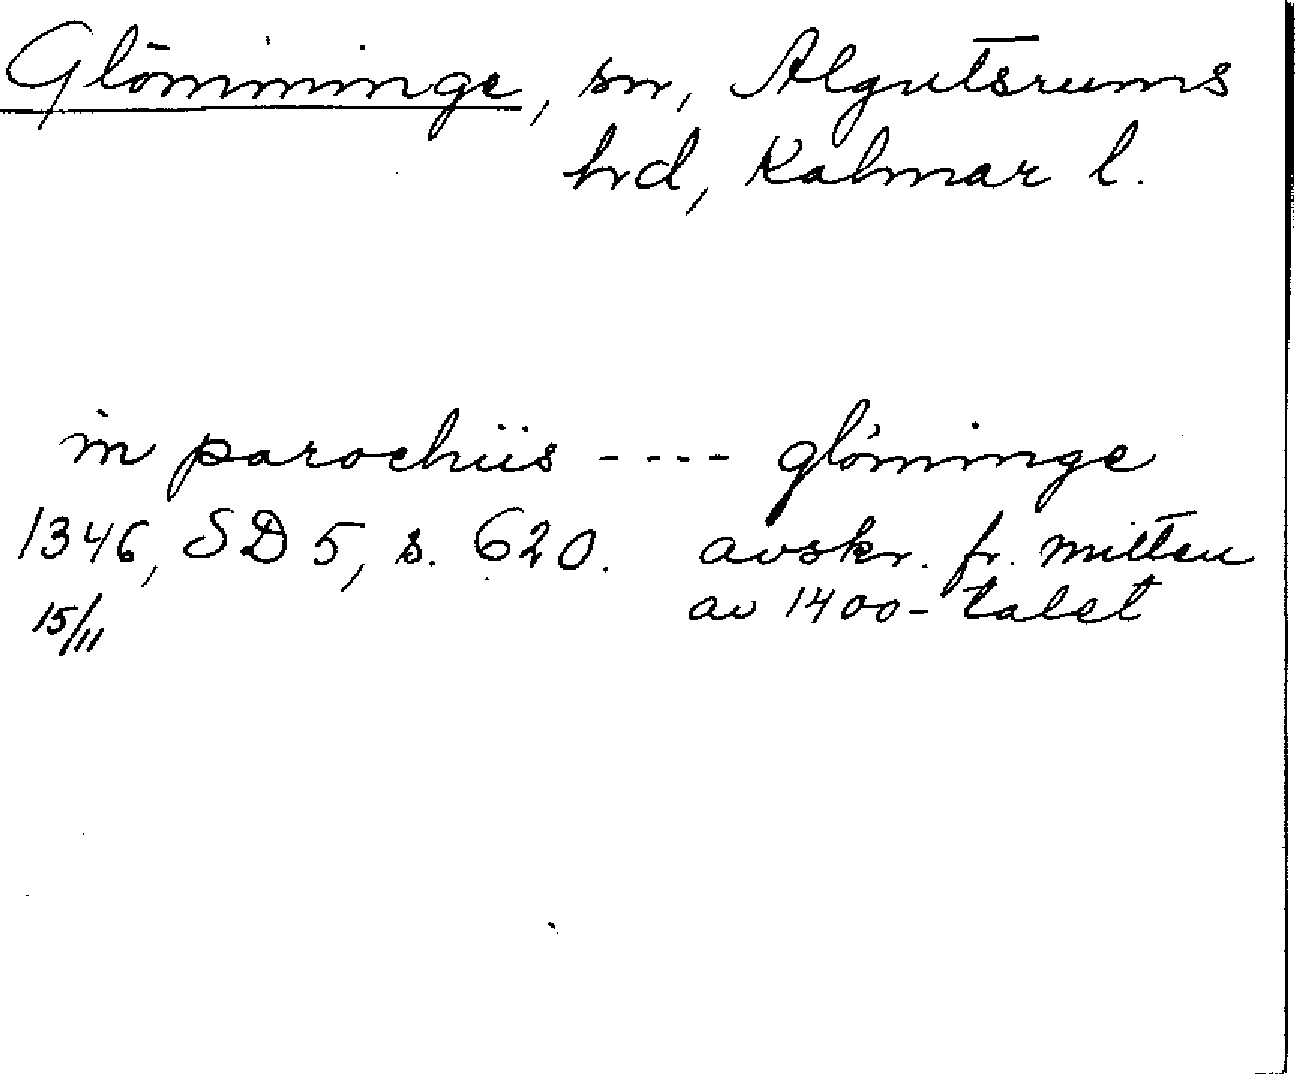 Glömminge, sn, Algutsrums
hrd, Kalmar l.
in parochiis ---- glöminge
1346, SD 5, s. 620. avskr. fr. mitten
15/11 av 1400-talet